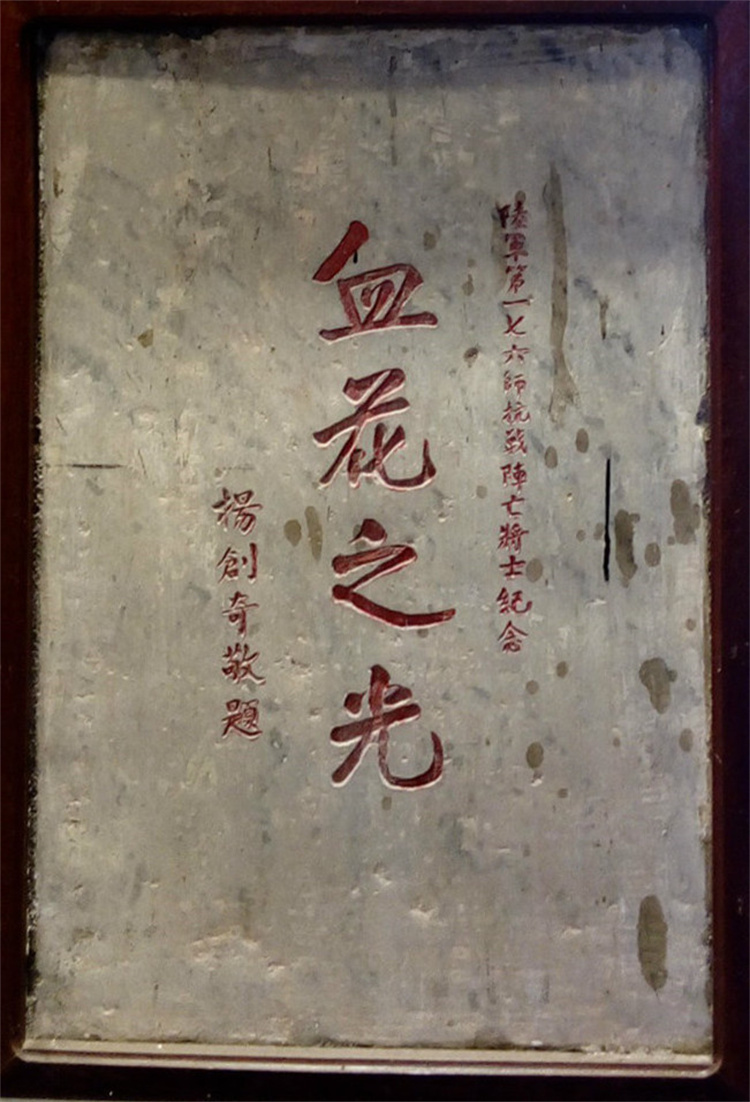 陸軍第一七六師抗戰陣亡將士紀念
血花之光
楊創奇敬題